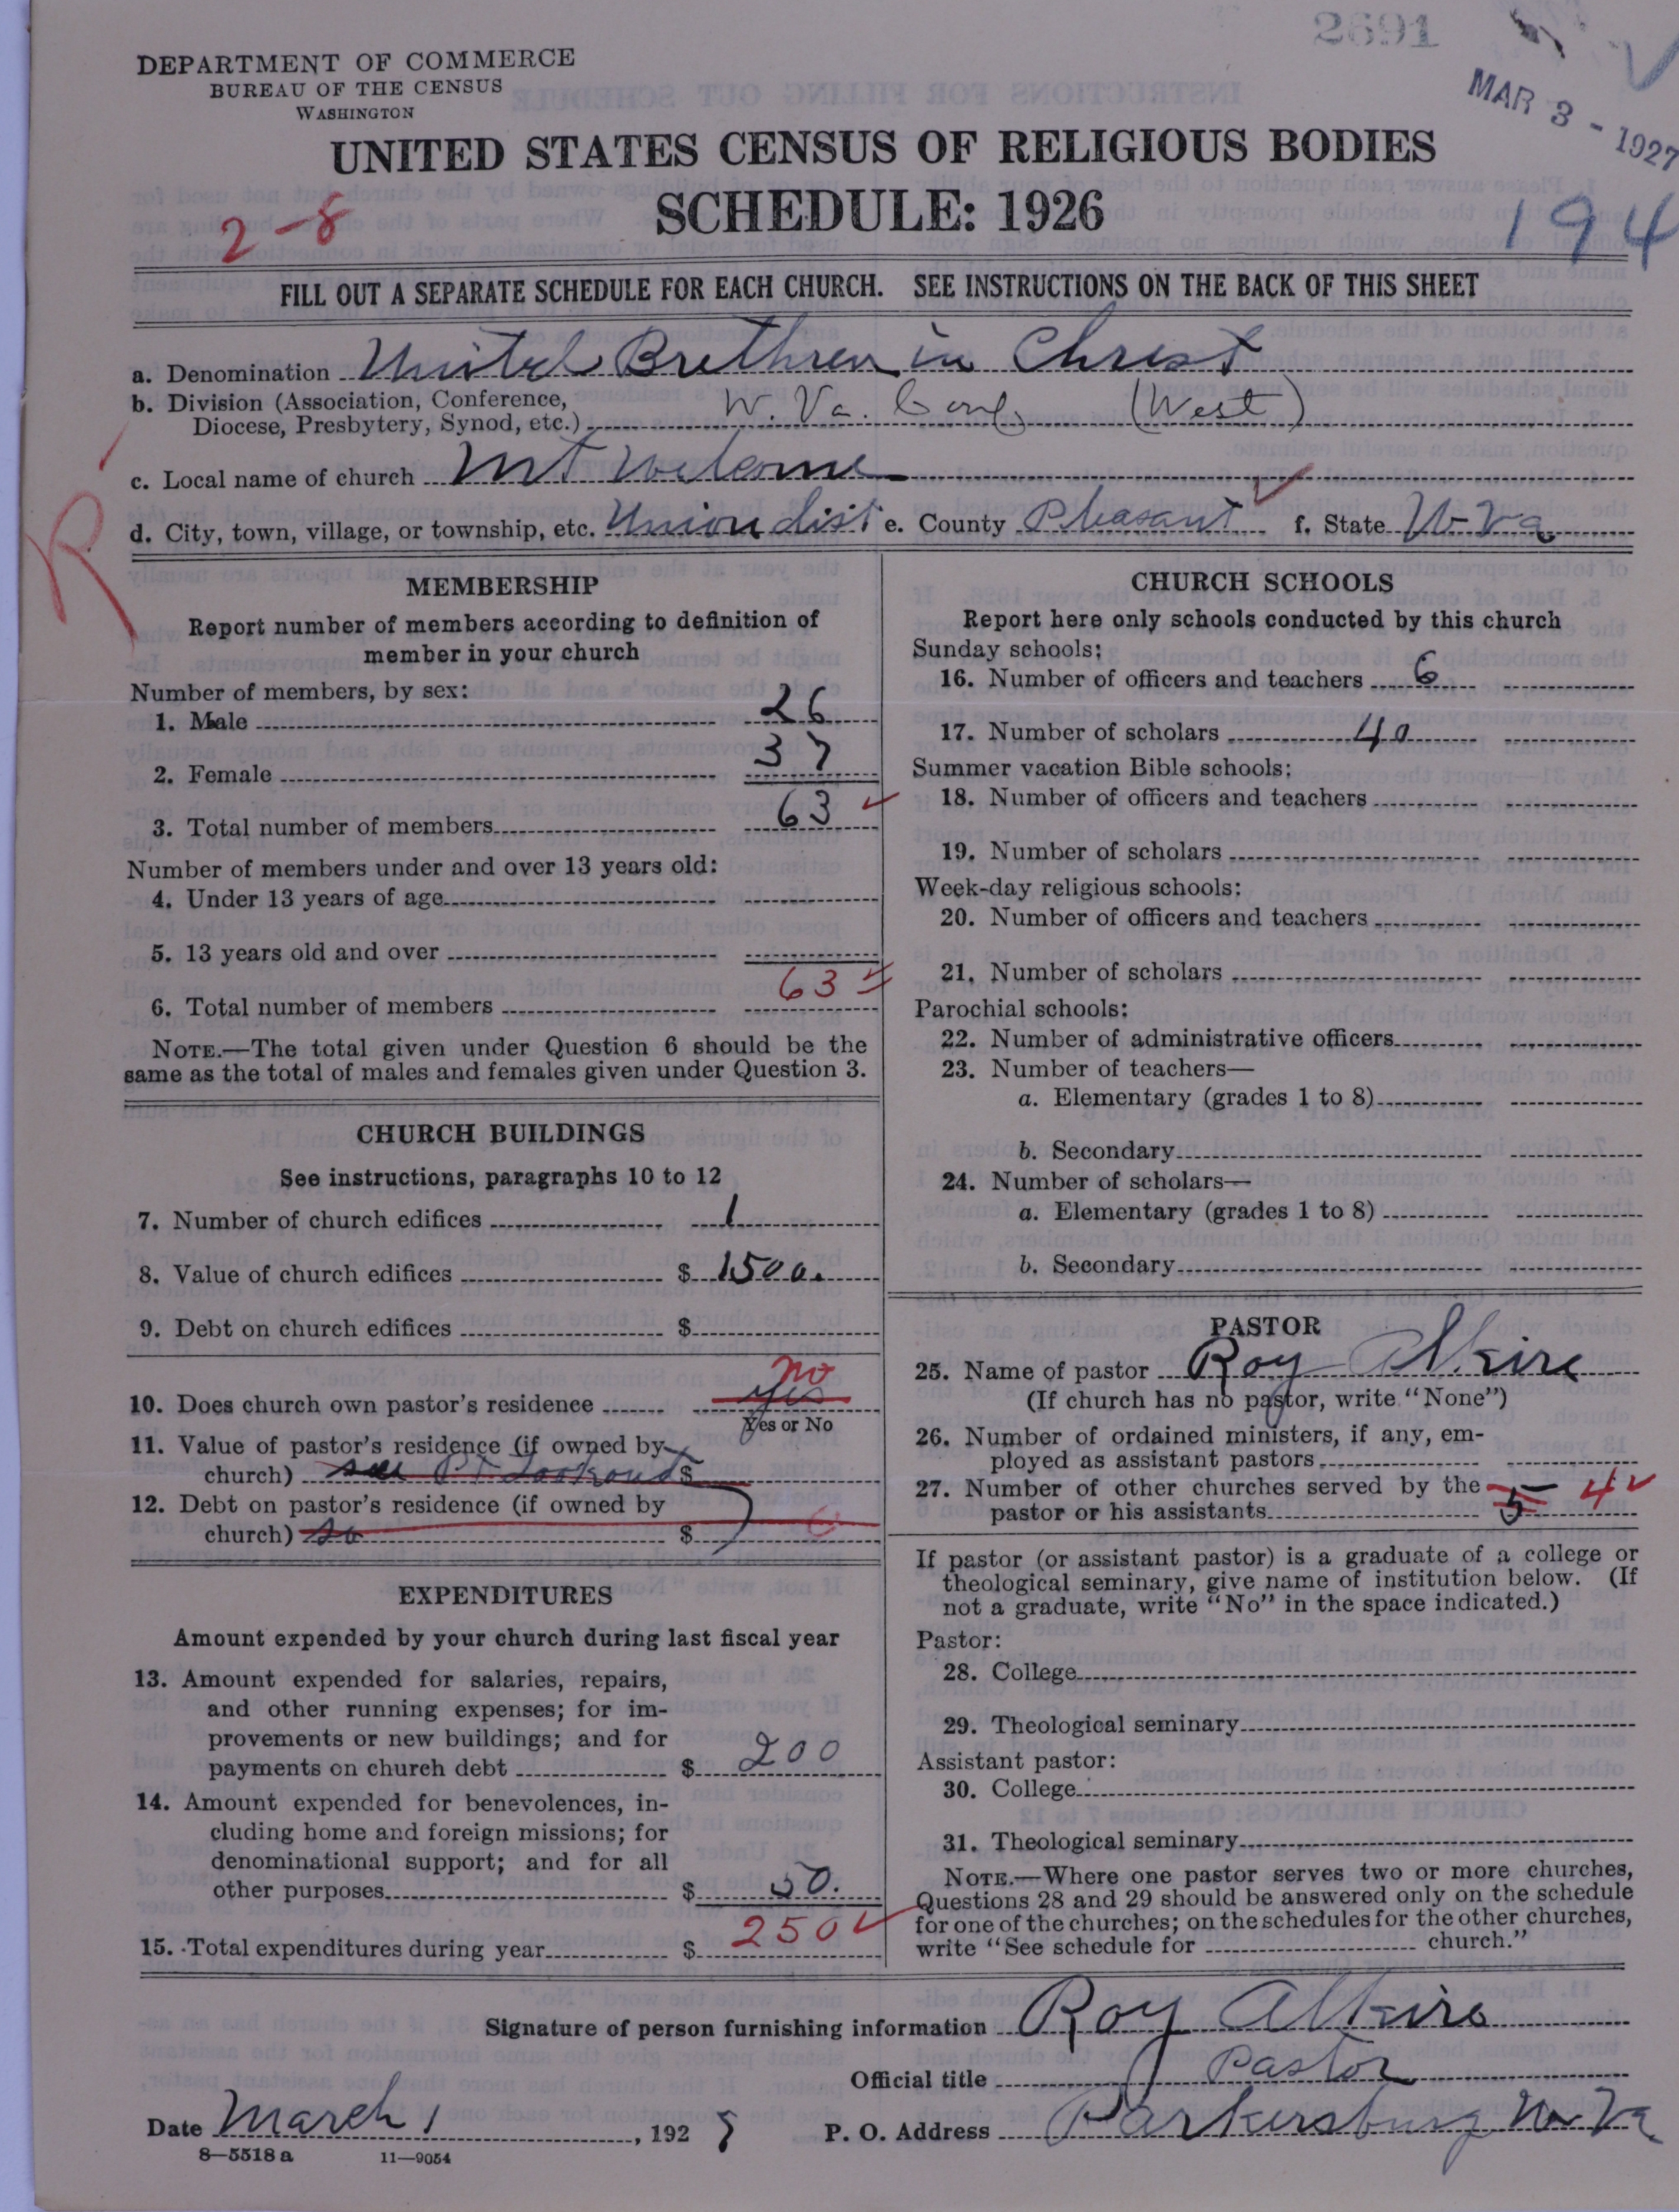 2691
MAR 3 - 1927
DEPARTMENT OF COMMERCE
BUREAU OF THE CENSUS
WASHINGTON
UNITED STATES CENSUS OF RELIGIOUS BODIES
SCHEDULE: 1926
2-8
194
FILL OUT A SEPARATE SCHEDULE FOR EACH CHURCH. SEE INSTRUCTIONS ON THE BACK OF THIS SHEET
a. Denomination United Brethren in Christ
b. Division (Association, Conference,
Diocese, Presbytery, Synod, etc.) W. Va. Conf (West)
c. Local name of church Mt Welcome
d. City, town, village, or township, etc. Union dist e. County Pleasant f. State W-Va
R
MEMBERSHIP
Report number of members according to definition of
member in your church
Number of members, by sex:
1. Male 26
2. Female 37
3. Total number of members 63
Number of members under and over 13 years old:
4. Under 13 years of age
5. 13 years old and over
6. Total number of members 63
NOTE.—The total given under Question 6 should be the
same as the total of males and females given under Question 3.
CHURCH BUILDINGS
See instructions, paragraphs 10 to 12
7. Number of church edifices 1
8. Value of church edifices $ 1500.
9. Debt on church edifices $
no
10. Does church own pastor's residence yes
Yes or No
11. Value of pastor's residence (if owned by
church) see Pt Lookout $
12. Debt on pastor's residence (if owned by
church) $
EXPENDITURES
Amount expended by your church during last fiscal year
13. Amount expended for salaries, repairs,
and other running expenses; for im-
provements or new buildings; and for
payments on church debt $ 200
14. Amount expended for benevolences, in-
cluding home and foreign missions; for
denominational support; and for all
other purposes $ 50.
15. Total expenditures during year $ 250
CHURCH SCHOOLS
Report here only schools conducted by this church
Sunday schools:
16. Number of officers and teachers 6
17. Number of scholars 40
Summer vacation Bible schools:
18. Number of officers and teachers
19. Number of scholars
Week-day religious schools:
20. Number of officers and teachers
21. Number of scholars
Parochial schools:
22. Number of administrative officers
23. Number of teachers—
a. Elementary (grades 1 to 8)
b. Secondary
24. Number of scholars—
a. Elementary (grades 1 to 8)
b. Secondary
PASTOR
25. Name of pastor Roy Alkire
(If church has no pastor, write "None")
26. Number of ordained ministers, if any, em-
ployed as assistant pastors
27. Number of other churches served by the
pastor or his assistants 5 4
If pastor (or assistant pastor) is a graduate of a college or
theological seminary, give name of institution below. (If
not a graduate, write "No" in the space indicated.)
Pastor:
28. College
29. Theological seminary
Assistant pastor:
30. College
31. Theological seminary
NOTE.—Where one pastor serves two or more churches,
Questions 28 and 29 should be answered only on the schedule
for one of the churches; on the schedules for the other churches,
write "See schedule for church."
Signature of person furnishing information Roy Alkire
Official title Pastor
Date March 1, 192 P. O. Address Parkersburg W-Va
8—5518 a 11—9054